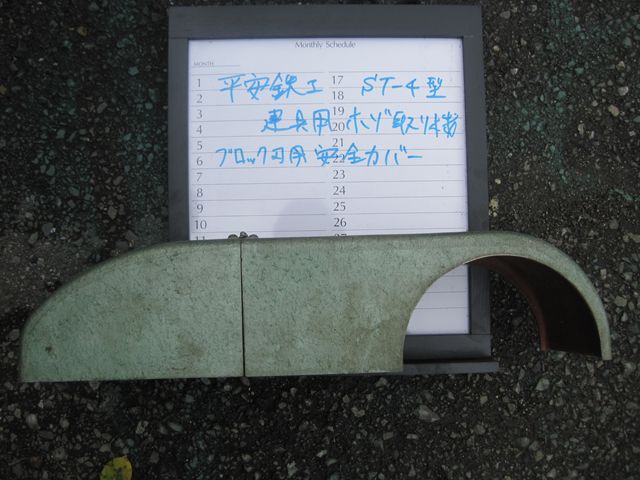 Monthly Schedule
MONTH
平安鉄工 ST-4型
建具用ホゾ取り機
ブロック刃用安全カバー
1 17
2 18
3 19
4 20
5 21
6 22
7 23
8 24
9 25
10 26
11 27